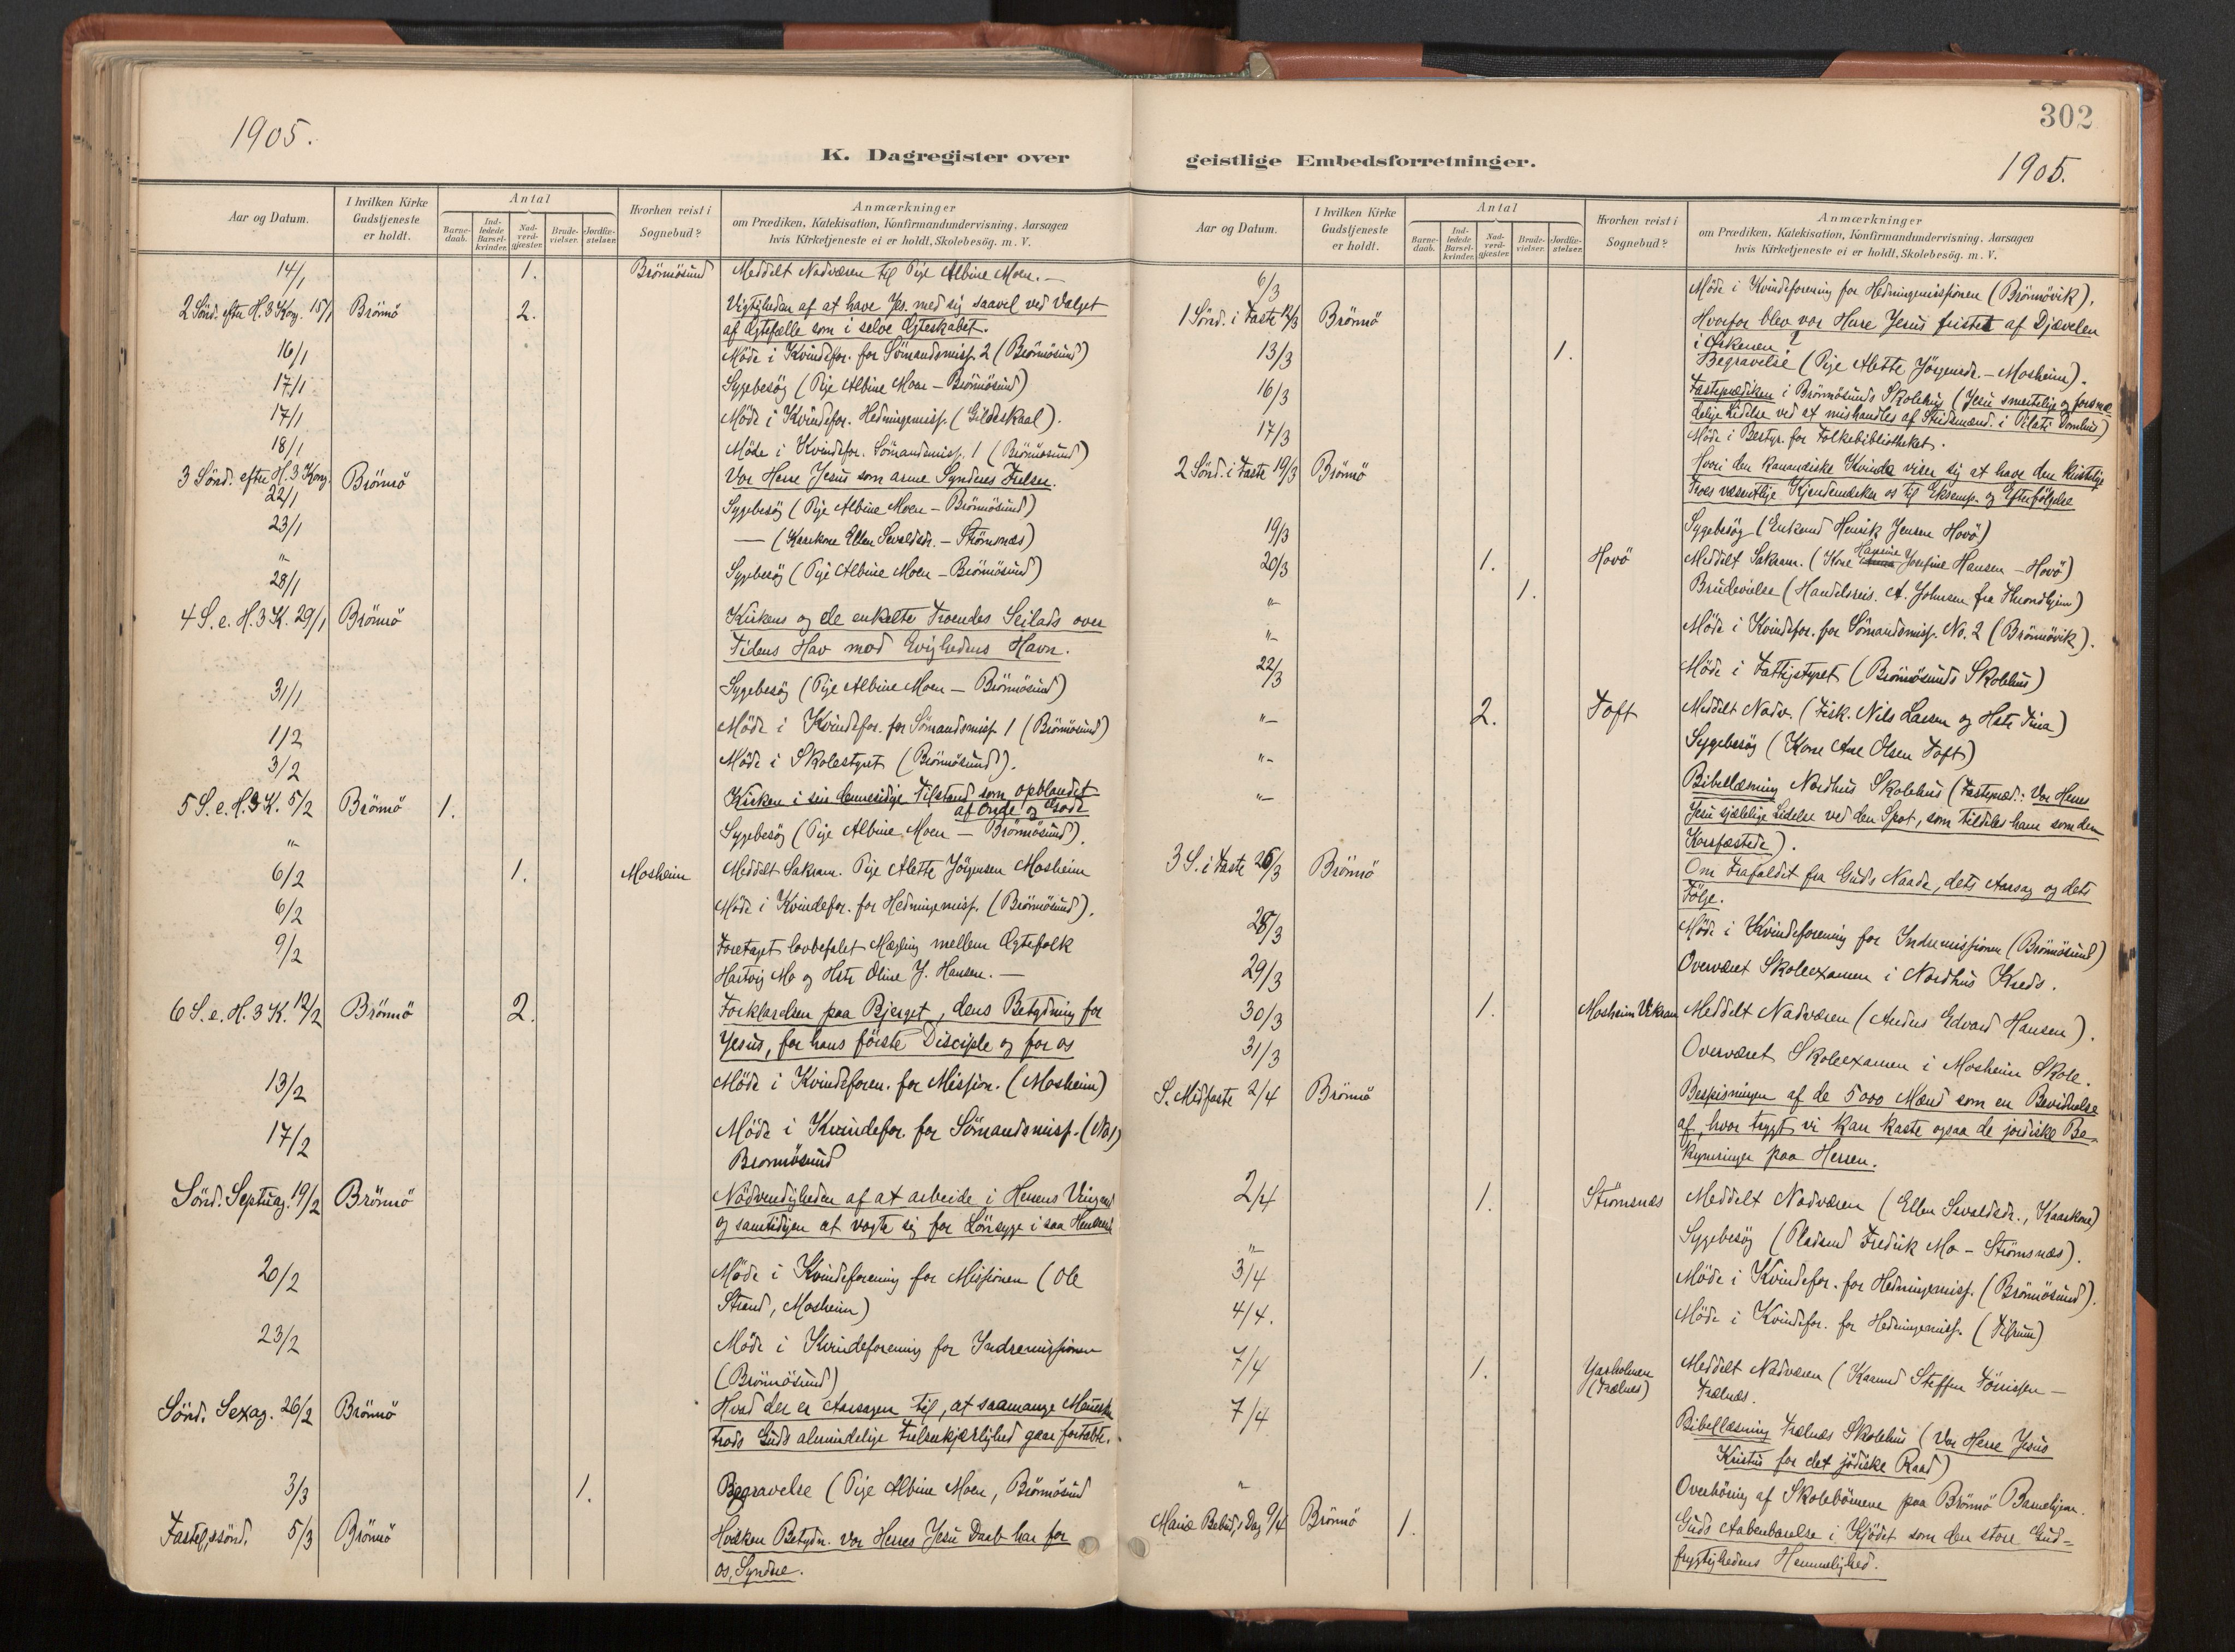 1905.
K. Dagregister over
Aar og Datum.
I hvilken Kirke Gudstjeneste er holdt.
Antal
Barne-daab.
Ind-ledede Barsel-kvinder.
Nad-verd-gjæster.
Brude-vielser.
Jordfæ-stelser.
Hvorhen reist i Sognebud?
Anmærkninger
om Prædiken, Katekisation, Konfirmandundervisning. Aarsagen
hvis Kirketjeneste ei er holdt, Skolebesög. m. V.
14/1 1. Brönnösund Meddelt Nadveren til Pige Albine Moen. —
2 Sönd. efter H. 3 Kong. 15/1 Brönnö 2. Vigtigheden af at have Jes. med sig saavel ved Valget
af Ægtefælle som i selve Ægteskabet.
16/1 Möde i Kvindefor. for Sömandsmiss. 2 (Brönnösund)
17/1 Sygebesög (Pige Albine Moen – Brönnösund)
17/1 Möde i Kvindefor. Hedningemiss. (Gildeskaal).
18/1 Möde i Kvindefor. Sömandsmiss. 1 (Brönnösund)
3 Sönd. efter H. 3 Kong. 22/1 Brönnö Vor Herre Jesus som arme Synderes Frelser.
Sygebesög (Pige Albine Moen – Brönnösund)
23/1 — (Kaarkone Ellen Sevaldsdr. – Strömsnæs)
"
28/1 Sygebesög (Pige Albine Moen – Brönnösund)
4 S. e. H. 3 K. 29/1 Brönnö Kirkens og de enkelte Troendes Seilads over
Tidens Hav mod Evighedens Havn.
31/1 Sygebesög (Pige Albine Moen – Brönnösund)
1/2 Möde i Kvindefor. for Sömandsmiss. 1 (Brönnösund)
3/2 Möde i Skolestyret (Brönnösund).
5 S. e. H. 3 K. 5/2 Brönnö 1. Kirken i sin dennesidige Tilstand som opblandet
af Onde og Gode
" Sygebesög (Pige Albine Moen – Brönnösund).
6/2 1. Mosheim Meddelt Sakram. Pige Alette Jörgensen Mosheim
6/2 Möde i Kvindefor. for Hedningemiss. (Brönnösund).
9/2 Foretaget lovbefalet Mægling mellem Ægtefolk
Hartvig Mo og Hstr Oline J. Hansen. —
6 S. e. H. 3 K. 12/2 Brönnö 2. Forklarelsen paa Bjerget, dens Betydning for
Jesus, for hans förste Disciple og for os
13/2 Möde i Kvindeforen. for Mission. (Mosheim)
17/2 Möde i Kvindefor. for Sömandsmiss. (No 1)
Brönnösund
Sönd. Septuag. 19/2 Brönnö Nödvendigheden af at arbeide i Herrens Vingaard
og samtidigen at vogte sig for Lönsyge i saa Henseend
20/2 Möde i Kvindeforening for Missionen (Ole
Strand, Mosheim)
23/2 Möde i Kvindeforening for Indremissionen
(Brönnösund)
Sönd. Sexag. 26/2 Brönnö Hvad der er Aarsagen til, at saamange Mennesker
trods Guds almindelige Frelserkjærlighed gaar fortabte.
3/3 1. Begravelse (Pige Albine Moen, Brönnösund
Fastel,ssönd. 5/3 Brönnö Hvilken Betydn. vor Herres Jesu Daab har for
os, Syndere.
302
1905.
geistlige Embedsforretninger.
Aar og Datum.
I hvilken Kirke Gudstjeneste er holdt.
Antal
Barne-daab.
Ind-ledede Barsel-kvinder.
Nad-verd-gjæster.
Brude-vielser.
Jordfæ-stelser.
Hvorhen reist i Sognebud?
Anmærkninger
om Prædiken, Katekisation, Konfirmandundervisning. Aarsagen
hvis Kirketjeneste ei er holdt, Skolebesög. m. V.
6/3 Möde i Kvindeforening for Hedningemissionen (Brönnövik).
1 Sönd. i Faste 12/3 Brönnö Hvorfor blev vor Herre Jesus fristet af Djævelen
i Örkenen?
13/3 1. Begravelse (Pige Alette Jörgensdr. – Mosheim).
16/3 Fasteprædiken i Brönnösunds Skolehus (Jesu smertelige og forsmæ-
delige Lidelse ved at mishandles af Stridsmænd. i Pilati Domhus)
17/3 Möde i Bestyr. for Folkebibliotheket.
2 Sönd. i Faste 19/3 Brönnö Hvori den kananæiske Kvinde viser sig at have den kristelige
Troes væsentlige Kjendemærker os til Eksemp. og Efterfölgelse
19/3 Sygebesög (Enkemd Henrik Jensen Hovö)
20/3 1. Hovö Meddelt Sakram. (Kone Hansine Josefine Hansen – Hovö)
" 1. Brudevielse (Handelsreis. A. Johnsen fra Throndhjem)
" Möde i Kvindefor. for Sömandsmiss. No. 2 (Brönnövik).
22/3 Möde i Fattigstyret (Brönnösunds Skolehus)
" 2. Toft Meddelt Nadv. (Fisk. Nils Larsen og Hstr Tina)
" Sygebesög (Kone Ane Olsen Toft)
" Bibellæsning Nordhus Skolehus (Fastepræd.: Vor Herres
Jesu sjælelige Lidelse ved den Spot, som tildeles ham som den
Korsfæstede).
3 S. i Faste 26/3 Brönnö Om Frafaldet fra Guds Naade, dets Aarsag og dets
Fölge.
28/3 Möde i Kvindeforening for Indremissionen (Brönnösund)
29/3 Overværet Skoleexamen i Nordhus Kreds.
30/3 1. Mosheim Meddelt Nadveren (Anders Edvard Hansen).
31/3 Overværet Skoleexamen i Mosheim Skole.
S. Midfaste 2/4 Brönnö Bespisningen af de 5000 Mænd som en Bevidnelse
af, hvor trygt vi kan kaste ogsaa de jordiske Be-
kymringer paa Herren.
2/4 1. Strömsnæs Meddelt Nadveren (Ellen Sevaldsdr., Kaarkone)
" Sygebesög (Pladsmd Fredrik Mo – Strömsnæs).
3/4 Möde i Kvindefor. for Hedningemiss. (Brönnösund).
4/4. Möde i Kvindefor. for Hedningemiss. (Tilrum)
7/4 1. (Trælnes) Meddelt Nadveren (Kaarmd Steffen Tönissen –
Trælnæs.
7/4 Bibellæsning Trælnæs Skolehus (Vor Herre Jesus
Kristus for det jödiske Raad)
" Overhöring af Skolebörnene paa Brönnö Barnehjem.
Mariæ Bebud,s Dag 9/4 Brönnö 1. Guds Aabenbarelse i Kjödet som den store Gud-
frygtighedens Hemmelighed.